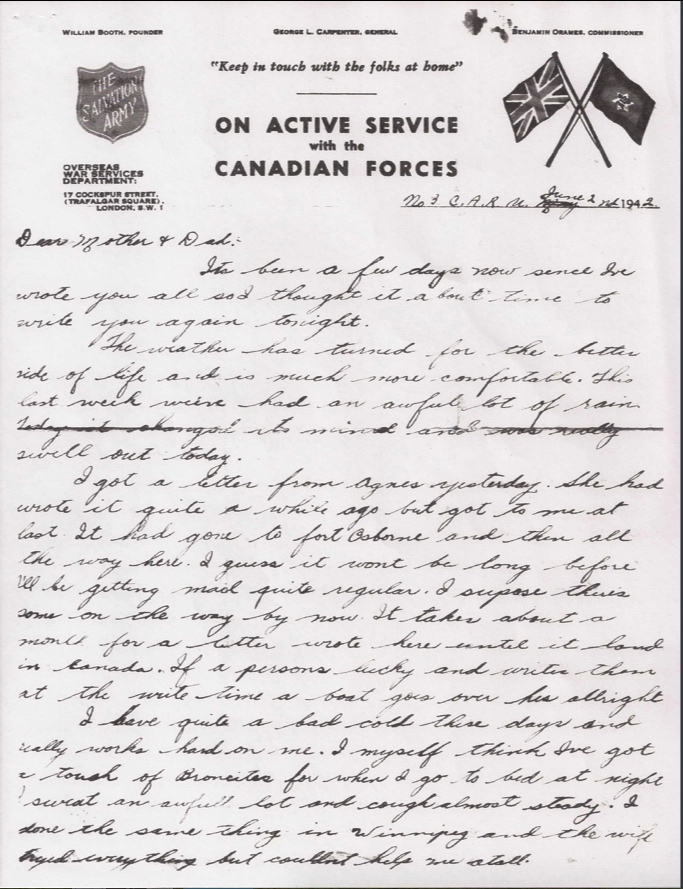 WILLIAM BOOTH, FOUNDER
GEORGE L. CARPENTER, GENERAL
BENJAMIN ORAMES, COMMISSIONER
THE
SALVATION
ARMY
"Keep in touch with the folks at home"
ON ACTIVE SERVICE
with the
CANADIAN FORCES
OVERSEAS
WAR SERVICES
DEPARTMENT:
17 COCKSPUR STREET,
(TRAFALGAR SQUARE),
LONDON, S.W. 1
No 3 C.A.R.U. June 2nd 1942
Dear Mother & Dad:-
Its been a few days now sence Ive
wrote you all so I thought it about time to
write you again tonight.
The weather has turned for the better
side of life and is much more comfortable. This
last week weve had an awful lot of rain
Today it changed its mind and was really
swell out today.
I got a letter from Agnes yesterday. She had
wrote it quite a while ago but got to me at
last. It had gone to fort Osborne and then all
the way here. I guess it wont be long before
I'll be getting mail quite regular. I supose theirs
some on the way by now. It takes about a
month for a letter wrote here until it land
in Canada. If a persons lucky and writes them
at the write time a boat goes over his allright
I have quite a bad cold these days and
really works hard on me. I myself think Ive got
a touch of Broncites for when I go to bed at night
I sweat an awfull lot and cough almost steady. I
done the same thing in Winnipeg and the wife
tryed everything but couldnt help me atall.